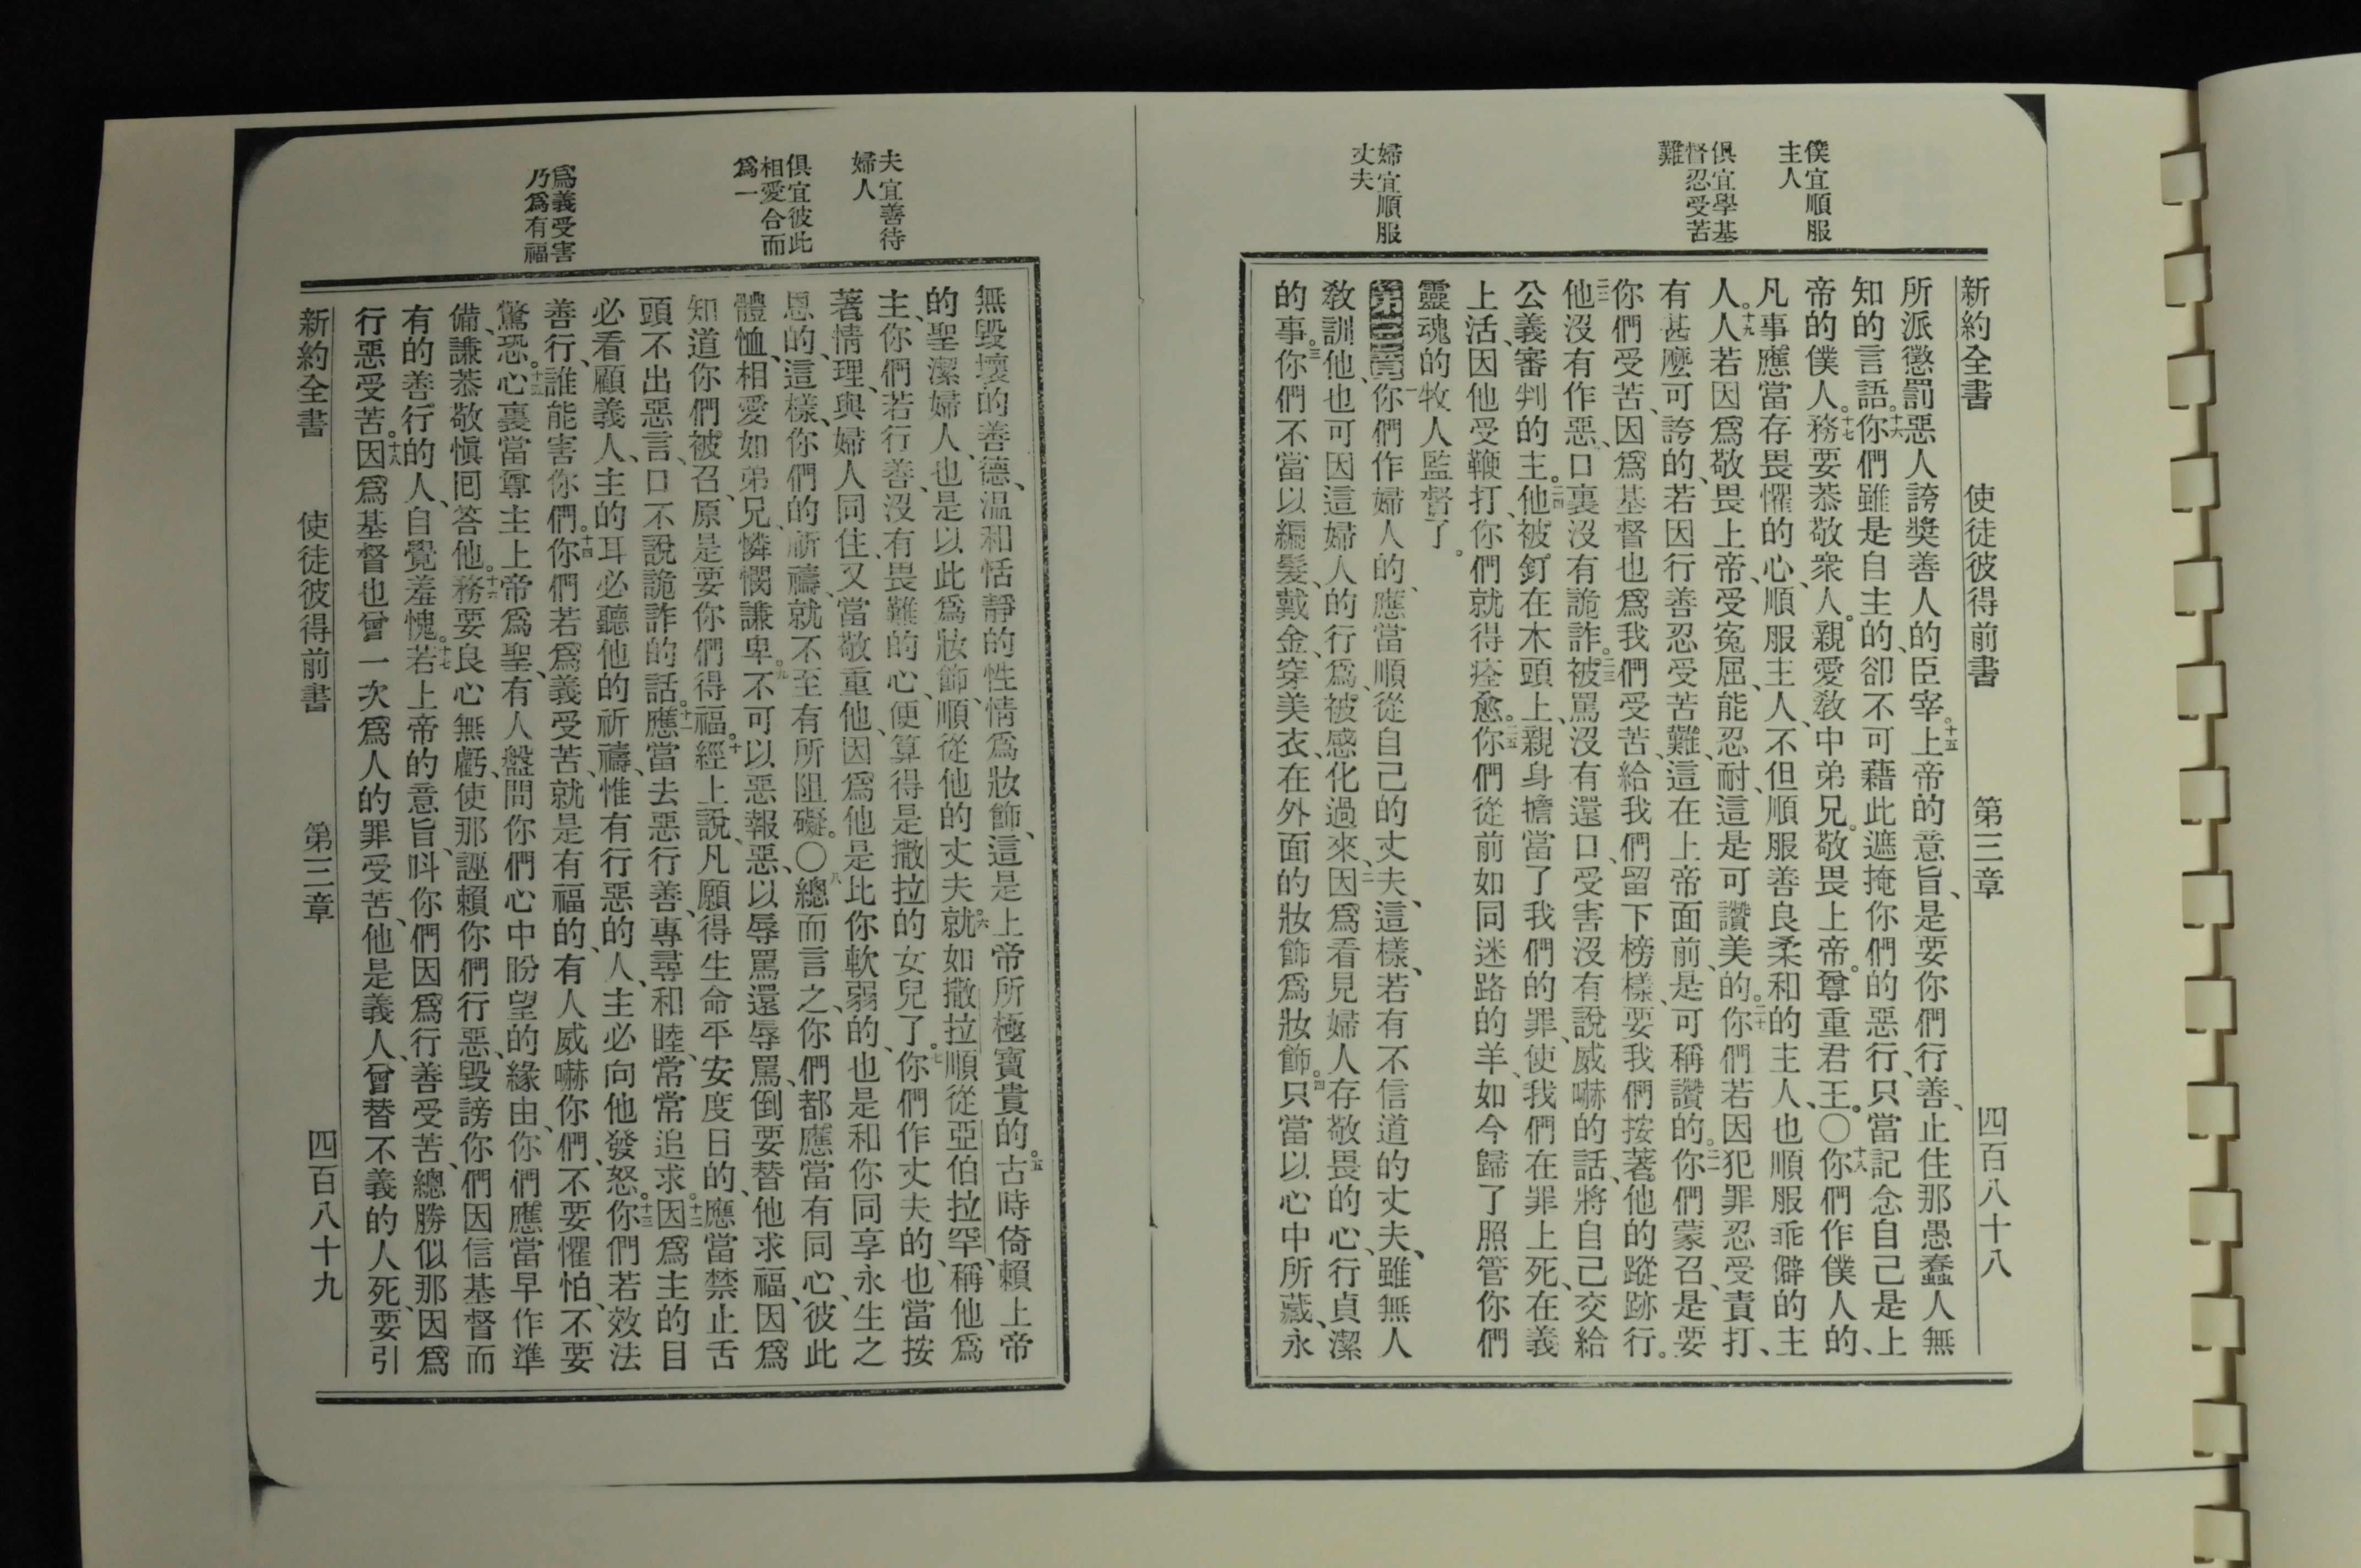 僕宜順服
主人
俱宜學基
督忍受苦
難
婦宜順服
丈夫
新約全書 使徒彼得前書 第三章 四百八十八
所派懲罰惡人誇獎善人的臣宰。十五上帝的意旨、是要你們行善、止住那愚蠢人無
知的言語。十六你們雖是自主的、卻不可藉此遮掩你們的惡行、只當記念自己是上
帝的僕人。十七務要恭敬衆人。親愛敎中弟兄。敬畏上帝。尊重君王。〇十八你們作僕人的、
凡事應當存畏懼的心、順服主人、不但順服善良柔和的主人、也順服乖僻的主
人。十九人若因爲敬畏上帝、受寃屈、能忍耐、這是可讚美的。二十你們若因犯罪忍受責打、
有甚麼可誇的、若因行善忍受苦難、這在上帝面前、是可稱讚的。二一你們蒙召、是要
你們受苦、因爲基督也爲我們受苦、給我們留下榜樣、要我們按著他的蹤跡行。
二二他沒有作惡、口裏沒有詭詐。二三被罵沒有還口、受害沒有說威嚇的話、將自己交給
公義審判的主。二四他被釘在木頭上、親身擔當了我們的罪、使我們在罪上死、在義
上活、因他受鞭打、你們就得痊愈。二五你們從前如同迷路的羊、如今歸了照管你們
靈魂的牧人監督了。
第三章一你們作婦人的、應當順從自己的丈夫、這樣、若有不信道的丈夫、雖無人
敎訓他、也可因這婦人的行爲、被感化過來、二因爲看見婦人存敬畏的心、行貞潔
的事。三你們不當以編髮、戴金、穿美衣、在外面的妝飾爲妝飾。四只當以心中所藏、永
夫宜善待
婦人
俱宜彼此
相愛合而
爲一
爲義受害
乃爲有福
無毀壞的善德、溫和恬靜的性情爲妝飾、這是上帝所極寶貴的。五古時倚賴上帝
的聖潔婦人、也是以此爲妝飾、順從他的丈夫。六就如撒拉順從亞伯拉罕、稱他爲
主、你們若行善、沒有畏難的心、便算得是撒拉的女兒了。七你們作丈夫的、也當按
著情理、與婦人同住、又當敬重他、因爲他是比你軟弱的、也是和你同享永生之
恩的、這樣、你們的祈禱、就不至有所阻礙。〇八總而言之、你們都應當有同心、彼此
體恤、相愛如弟兄、憐憫謙卑。九不可以惡報惡、以辱罵還辱罵、倒要替他求福、因爲
知道你們被召、原是要你們得福。十經上說、凡願得生命平安度日的、應當禁止舌
頭不出惡言、口不說詭詐的話。十一應當去惡行善、專尋和睦、常常追求。十二因爲主的目
必看顧義人、主的耳必聽他的祈禱、惟有行惡的人、主必向他發怒。十三你們若效法
善行、誰能害你們。十四你們若爲義受苦、就是有福的、有人威嚇你們、不要懼怕、不要
驚恐。十五心裏當尊主上帝爲聖、有人盤問你們心中盼望的緣由、你們應當早作準
備、謙恭敬愼囘答他。十六務要良心無虧、使那誣賴你們行惡、毀謗你們因信基督而
有的善行的人、自覺羞愧。十七若上帝的意旨、呌你們因爲行善受苦、總勝似那因爲
行惡受苦。十八因爲基督也曾一次爲人的罪受苦、他是義人、曾替不義的人死、要引
新約全書 使徒彼得前書 第三章 四百八十九